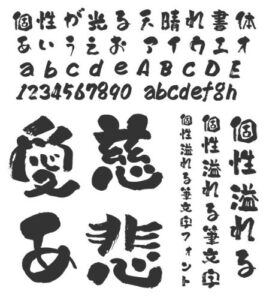 個性が光る天晴れ書体
あいうえおアイウエオ
abcdeABCDE
1234567890 abcdefgh
愛慈
あ悲
個性溢れる
個性溢れる筆文字
個性溢れる筆文字フォント